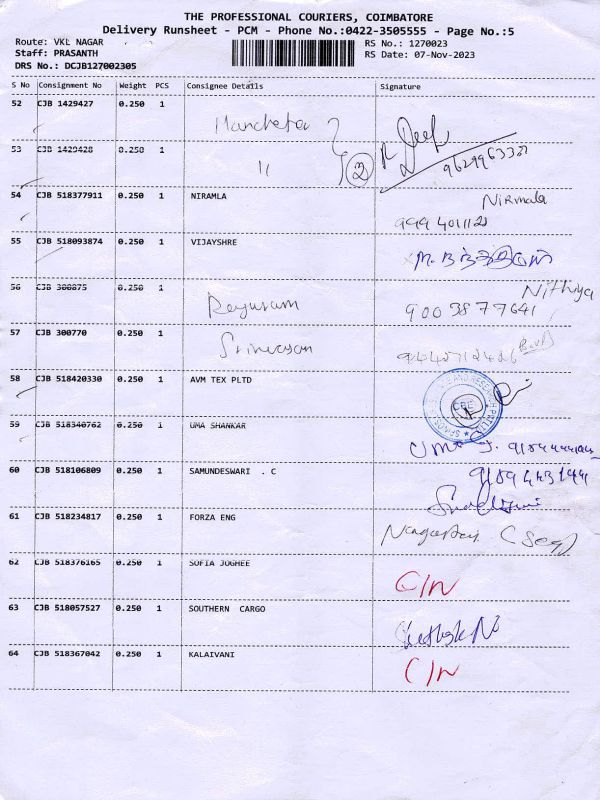 THE PROFESSIONAL COURIERS, COIMBATORE
Delivery Runsheet - PCM - Phone No.:0422-3505555 - Page No.:5
Route: VKL NAGAR
Staff: PRASANTH
DRS No.: DCJB127002305
RS No.: 1270023
RS Date: 07-Nov-2023
S No Consignment No Weight PCS Consignee Details Signature
52 CJB 1429427 0.250 1
53 CJB 1429428 0.250 1 11 2
54 CJB 518377911 0.250 1 NIRAMLA Nirmala
55 CJB 518093874 0.250 1 VIJAYSHRE
56 CJB 300875 0.250 1 Nithiya
9003877641
57 CJB 300770 0.250 1
58 CJB 518420330 0.250 1 AVM TEX PLTD CBE
59 CJB 518340762 0.250 1 UMA SHANKAR
60 CJB 518106809 0.250 1 SAMUNDESWARI . C
61 CJB 518234817 0.250 1 FORZA ENG
62 CJB 518376165 0.250 1 SOFIA JOGHEE C/N
63 CJB 518057527 0.250 1 SOUTHERN CARGO
64 CJB 518367042 0.250 1 KALAIVANI C/N